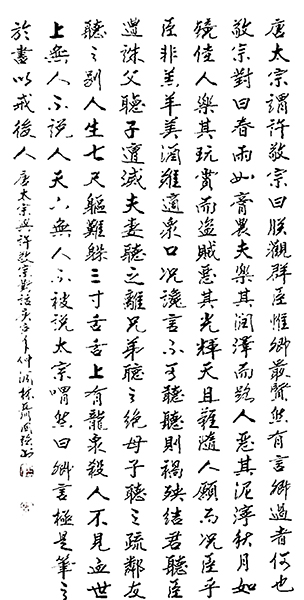 唐太宗謂許敬宗曰朕觀群臣惟卿最賢然有言卿過者何也
敬宗對曰春雨如膏農夫樂其潤澤而路人惡其泥濘秋月如
鏡佳人樂其玩賞而盜賊惡其光輝天且難隨人願而況臣乎
臣非羔羊美酒難適衆口況讒言不可聽聽則禍殃結君聽臣
遭誅父聽子遭滅夫妻聽之離兄弟聽之絶母子聽之疏鄰友
聽之别人生七尺軀難躲三寸舌舌上有龍泉殺人不見血世
上無人不説人天下無人不被説太宗喟然曰卿言極是筆之
於書以戒後人 唐太宗與許敬宗對話